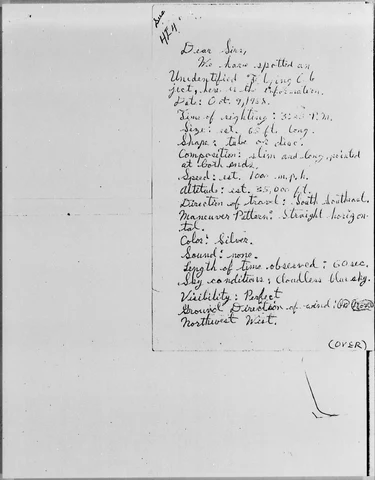 Dear Sirs,
We have spotted an
Unidentified Flying Ob
ject, here is the information.
Date: Oct. 9, 1958.
Time of sighting: P.M.
Size: est. ft. long.
Shape: tube or disc.
Composition: slim and long pointed
at both ends.
Speed: est. 1000 m.p.h.
Altitude: est. 35,000 ft.
Direction of travel: South Southeast.
Maneuver Pattern: Straight horizon-
tal.
Color: Silver.
Sound: none.
Length of time observed: 60 sec.
Sky conditions: Cloudless blue sky.
Visibility: Perfect
Ground Direction of wind:
Northwest West.
(OVER)